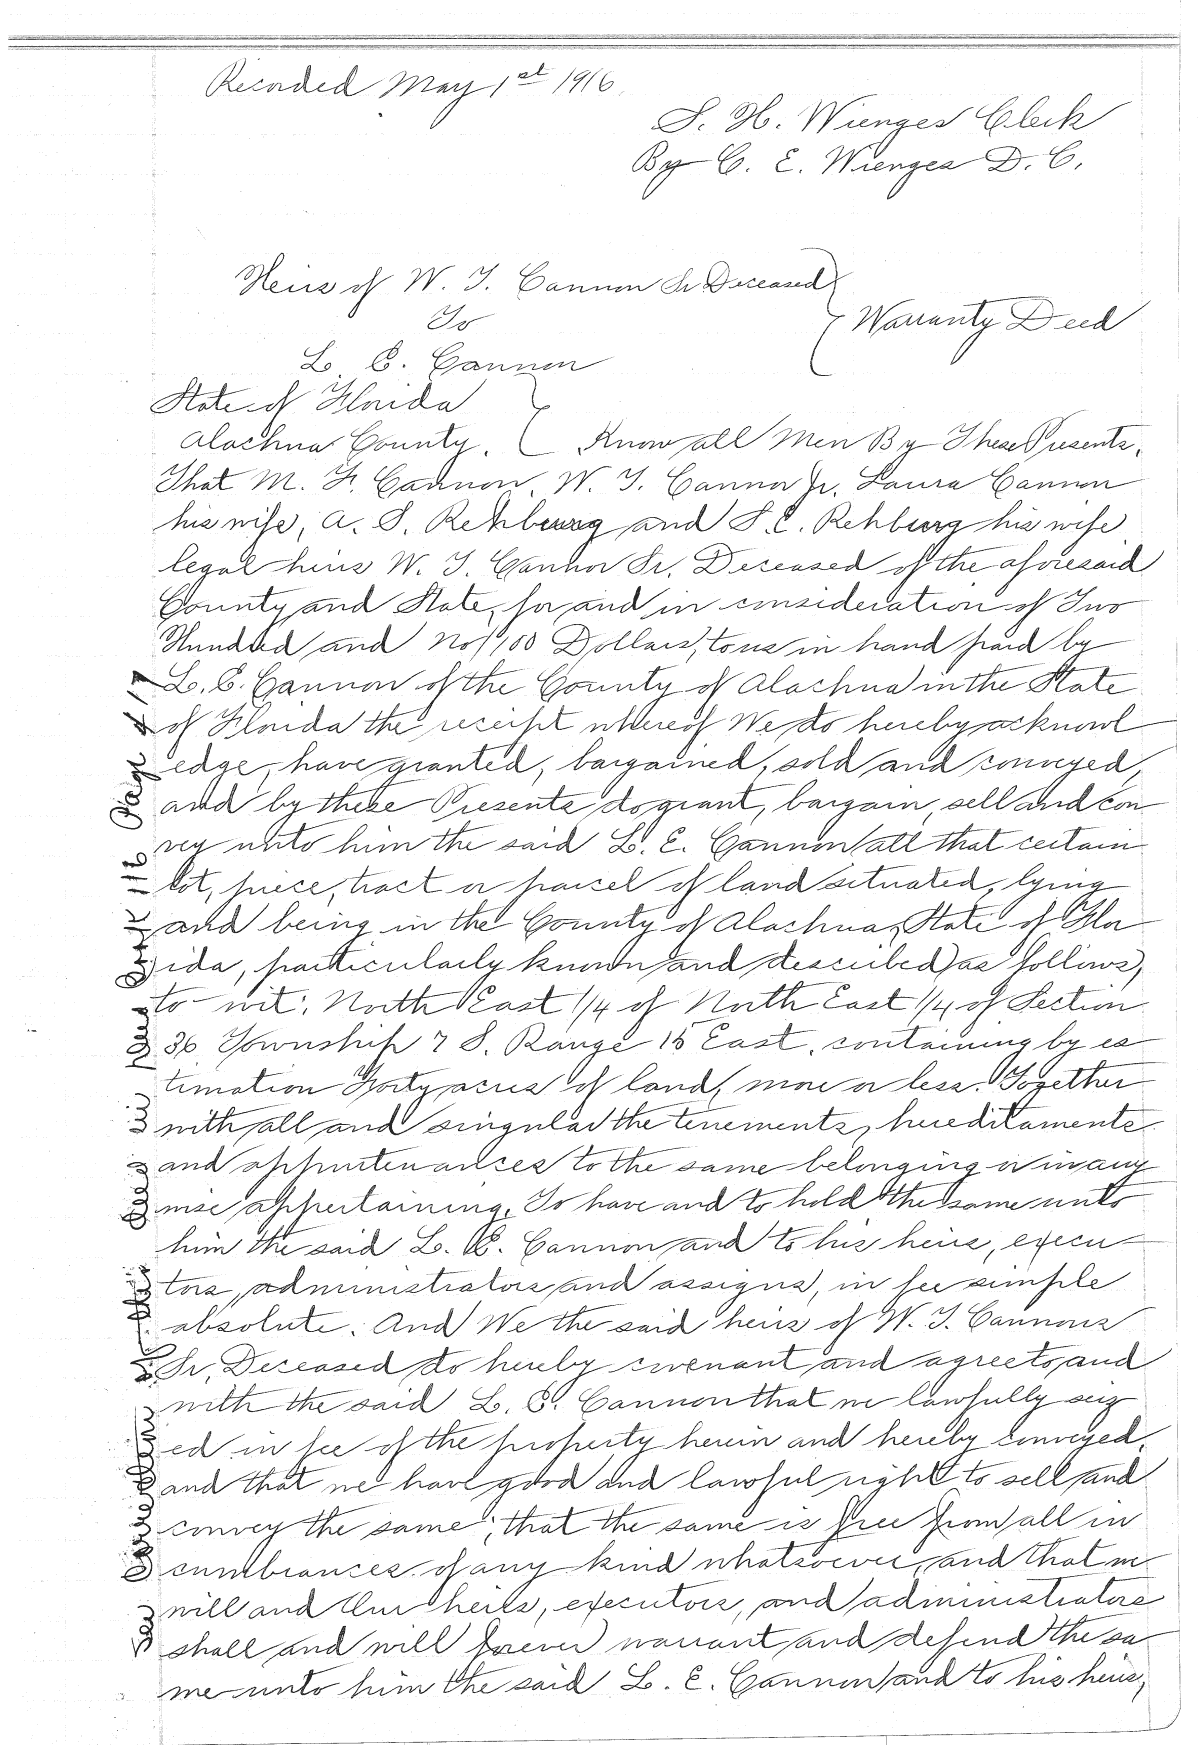 Recorded May 1st 1916.
S. H. Wienges Clerk
By C. E. Wienges D. C.
Heirs of W. T. Cannon Sr Deceased
To
Warranty Deed
L. E. Cannon
State of Florida
Alachua County. Know all Men By These Presents,
That M. F. Cannon, W. T. Cannon Jr. Laura Cannon
his wife, A. S. Rehburg and S. C. Rehburg his wife
legal heirs W. T. Cannon Sr. Deceased of the aforesaid
County and State, for and in consideration of Two
Hundred and No/100 Dollars, to us in hand paid by
L. E. Cannon of the County of Alachua in the State
of Florida the receipt whereof We do hereby acknowl
edge, have granted, bargained, sold and conveyed,
and by these Presents do grant, bargain, sell and con
vey unto him the said L. E. Cannon all that certain
lot, piece, tract or parcel of land situated, lying
and being in the County of Alachua, State of Flor
ida, particularly known and described as follows,
to wit: North East 1/4 of North East 1/4 of Section
36 Township 7 S. Range 15 East, containing by es
timation Forty acres of land, more or less. Together
with all and singular the tenements, hereditaments
and appurtenances to the same belonging or in any
wise appertaining. To have and to hold the same unto
him the said L. E. Cannon and to his heirs, execu-
tors, administrators and assigns, in fee simple
absolute. And We the said heirs of W. T. Cannons
Sr, Deceased do hereby covenant and agree to and
with the said L. E. Cannon that we lawfully seiz
ed in fee of the property herein and hereby conveyed,
and that we have good and lawful right to sell and
convey the same; that the same is free from all in
cumbrances of any kind whatsoever, and that we
will and Our heirs, executors, and administrators
shall and will forever warrant and defend the sa
me unto him the said L. E. Cannon and to his heirs,
Page